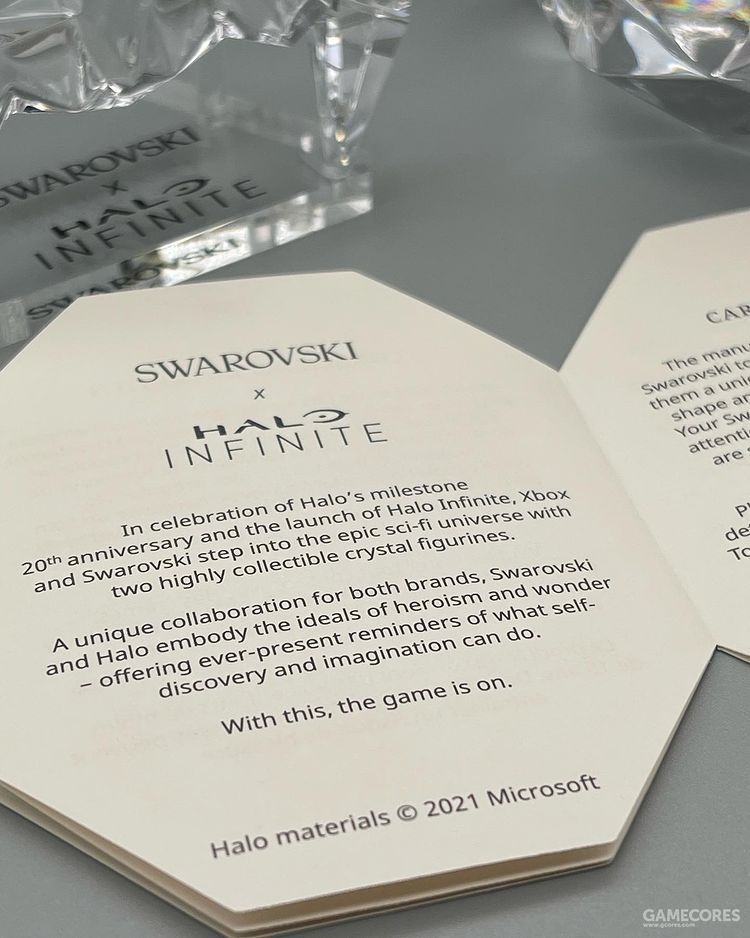 SWAROVSKI
x
HALO
INFINITE
SWAROVSKI
SWAROVSKI
x
HALO
INFINITE
In celebration of Halo's milestone
20th anniversary and the launch of Halo Infinite, Xbox
and Swarovski step into the epic sci-fi universe with
two highly collectible crystal figurines.
A unique collaboration for both brands, Swarovski
and Halo embody the ideals of heroism and wonder
– offering ever-present reminders of what self-
discovery and imagination can do.
With this, the game is on.
Halo materials © 2021 Microsoft
The
Swarovski
them a
shape
Your
are
GAMECORES
www.gcores.com